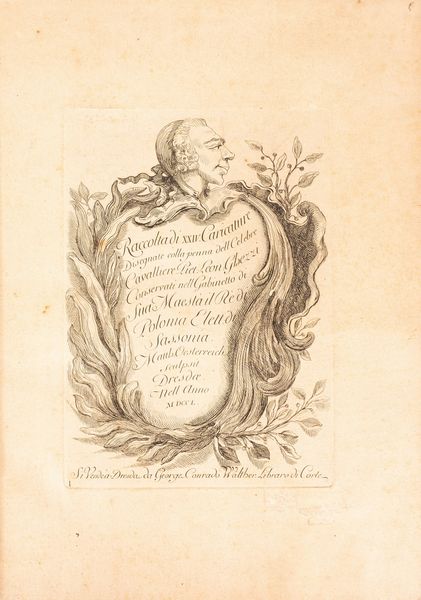 Raccolta di XXIV Caricature
Disegnate colla penna dell Celebre
Cavalliere Piet. Leon Ghezzi
Conservate nell Gabinetto di
Sua Maesta il Re di
Polonia Elett. di
Sassonia.
Matth. Oesterreich
Sculpsit
Dresdæ
Nell Anno
MDCCL.
Si Vende à Dresda da George Conrado Walther Libraro di Corte
1